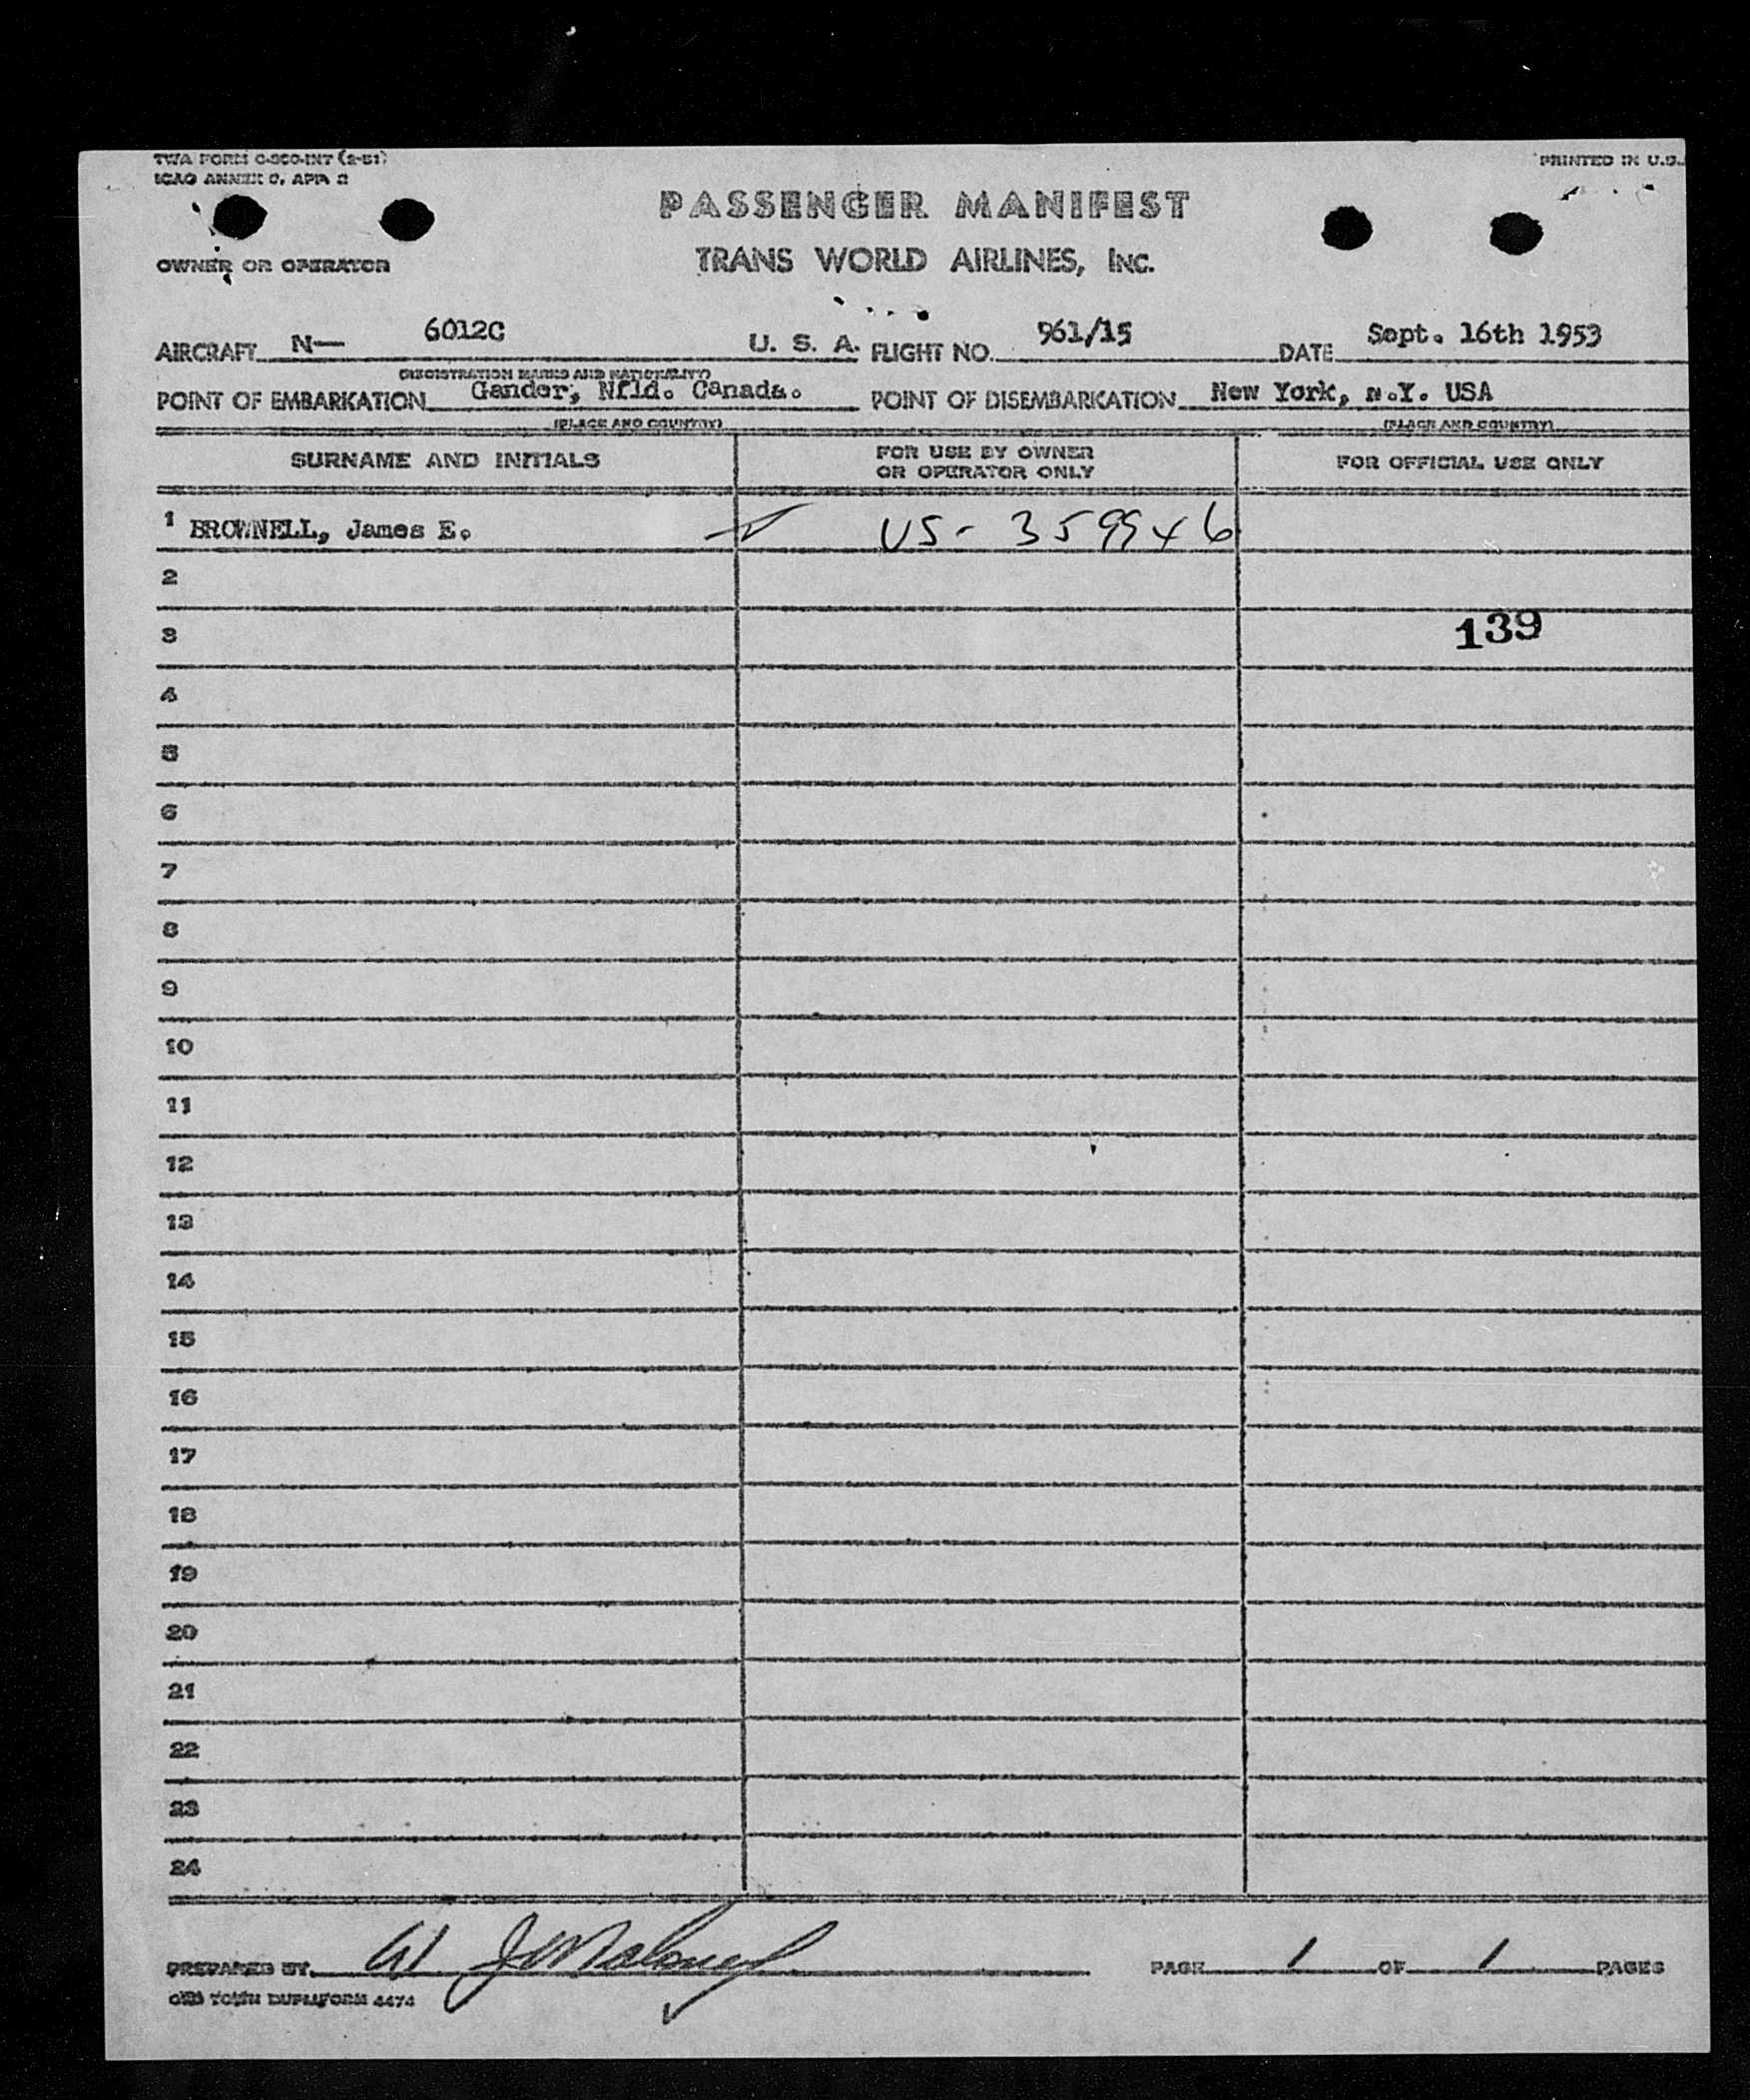 TWA FORM C-900-INT (2-51)
ICAO ANNEX 9, APP. 2
PRINTED IN U.S.
PASSENGER MANIFEST
OWNER OR OPERATOR
TRANS WORLD AIRLINES, INC.
AIRCRAFT N— 6012C U. S. A. FLIGHT NO. 961/15 DATE Sept. 16th 1953
(REGISTRATION MARKS AND NATIONALITY)
POINT OF EMBARKATION Gander, Nfld. Canada. POINT OF DISEMBARKATION New York, N.Y. USA
(PLACE AND COUNTRY) (PLACE AND COUNTRY)
SURNAME AND INITIALS
FOR USE BY OWNER
OR OPERATOR ONLY
FOR OFFICIAL USE ONLY
1 BROWNELL, James E. US- 359946
2
3 139
4
5
6
7
8
9
10
11
12
13
14
15
16
17
18
19
20
21
22
23
24
PREPARED BY PAGE 1 OF 1 PAGES
OLD TOWN DUPLIFORM 4474